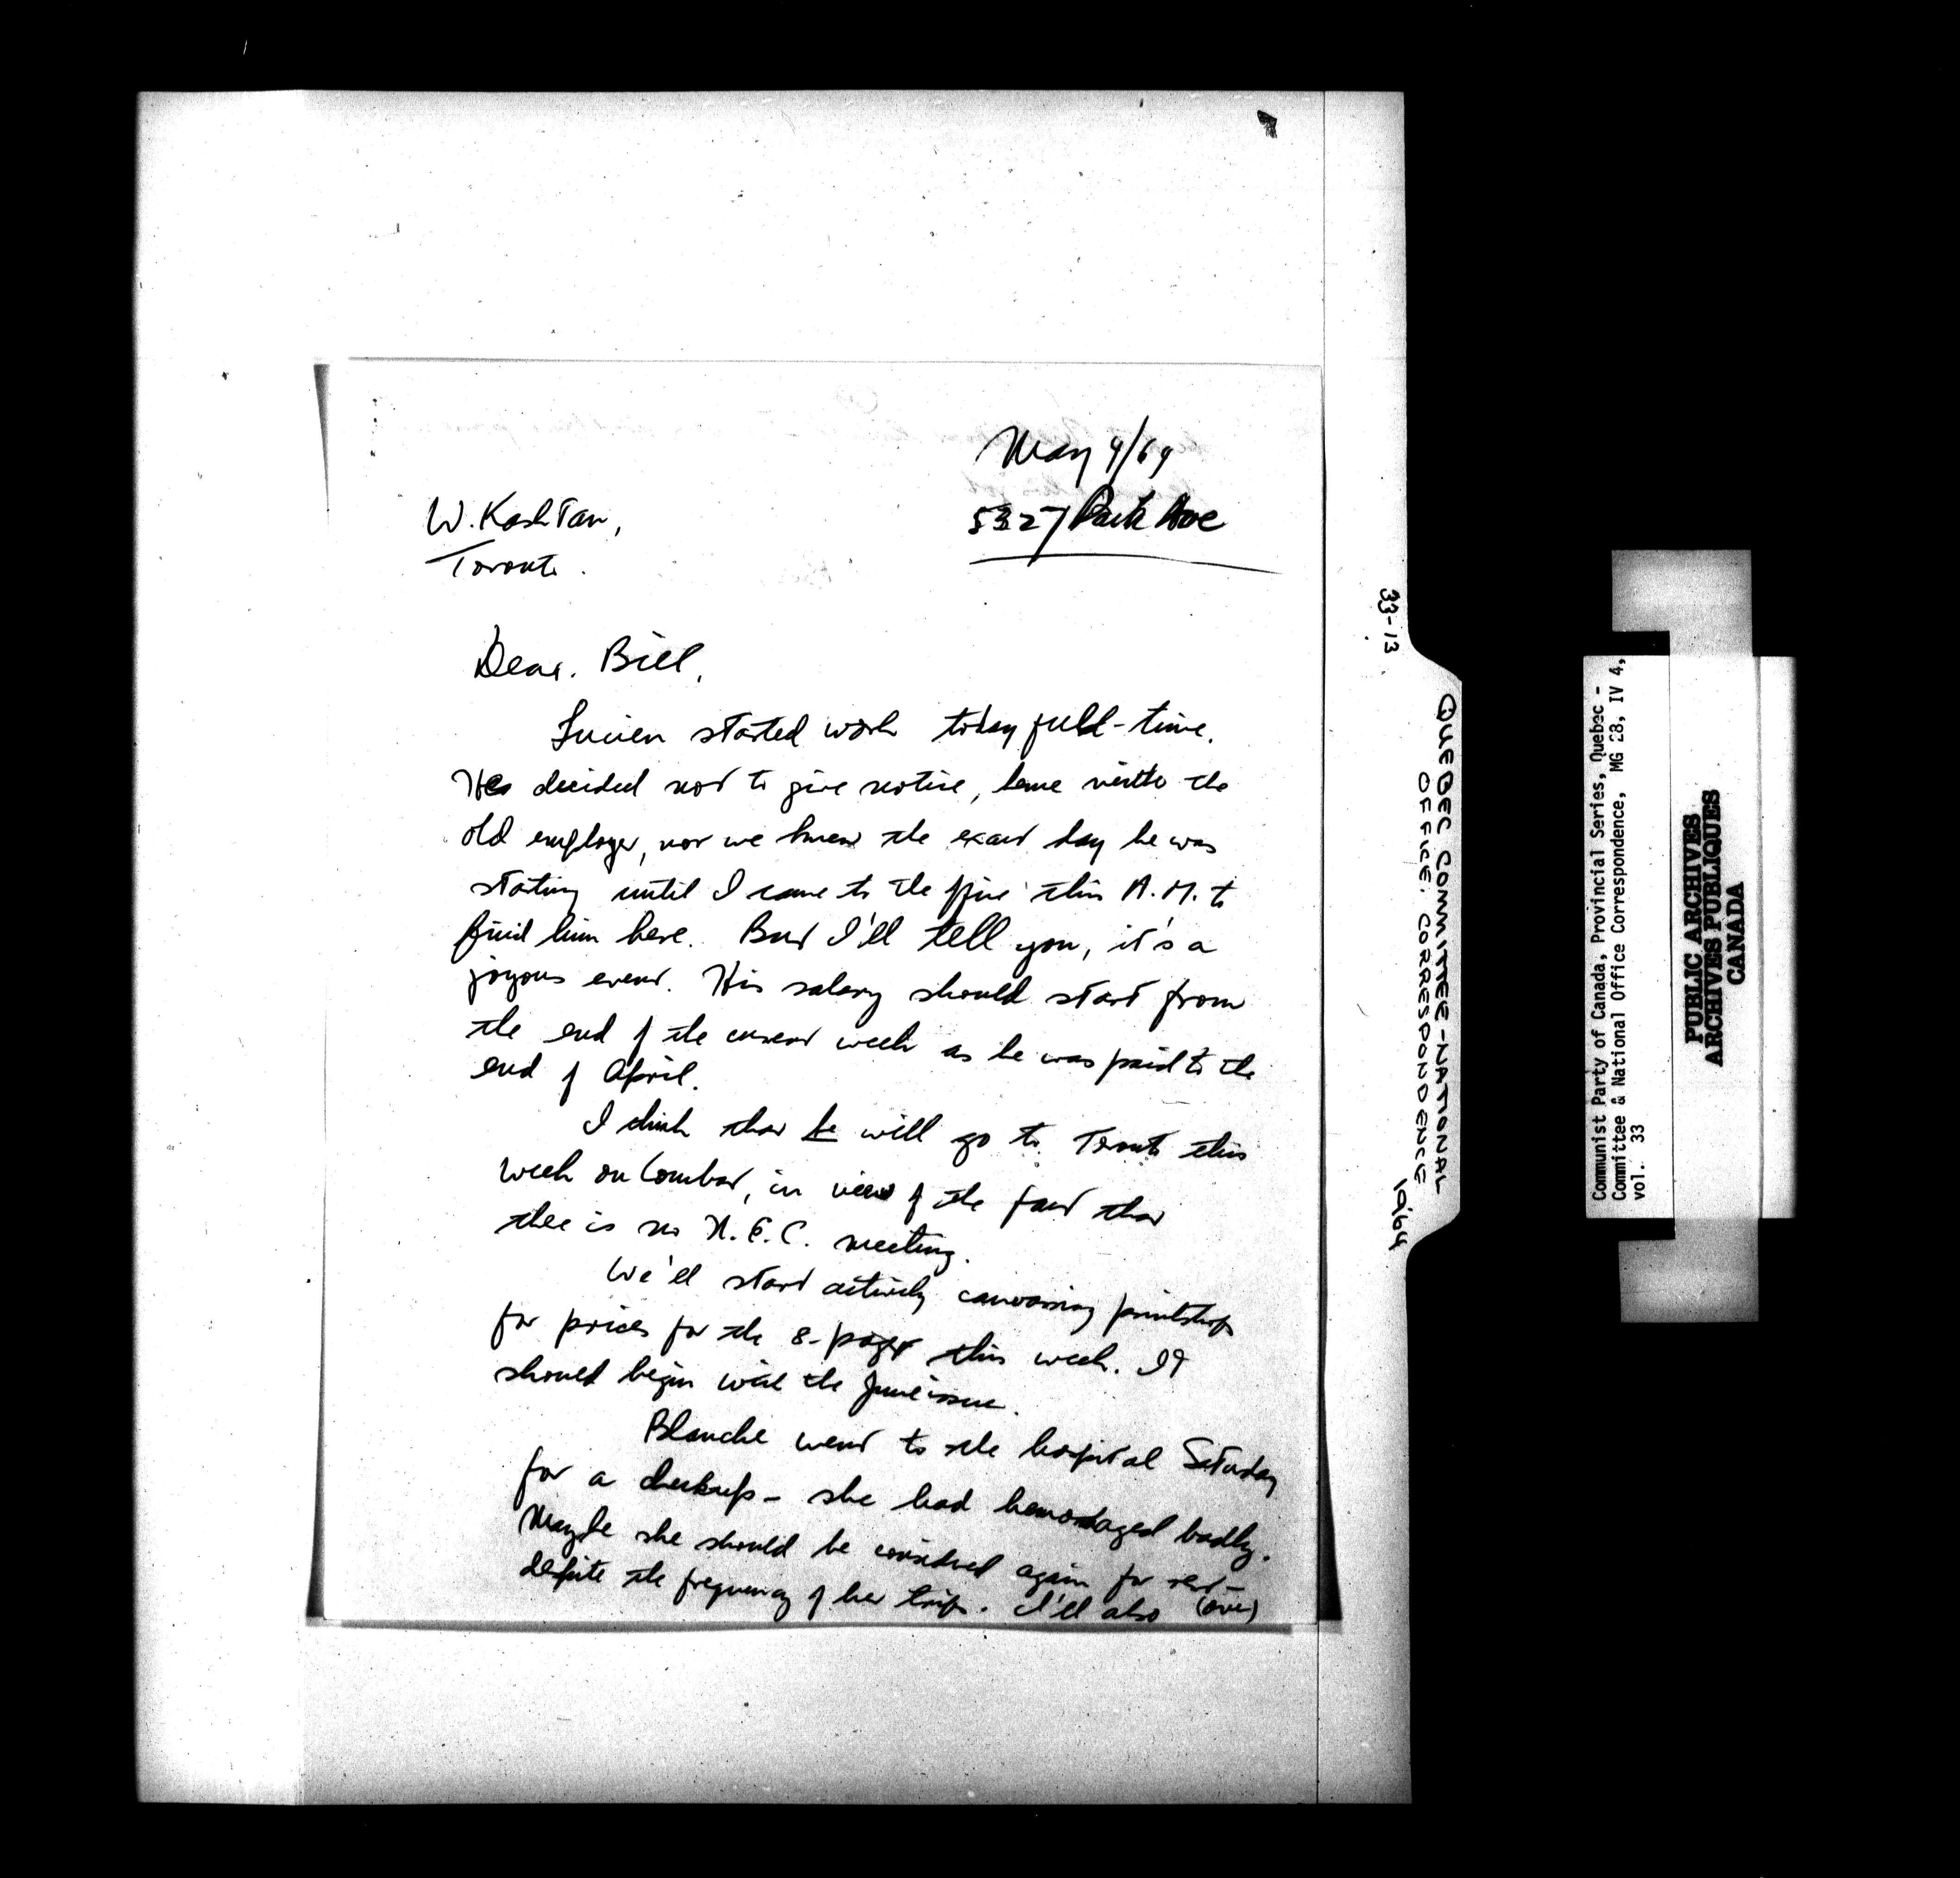 May 4/64
5327 Park Ave
W. Kashtan,
Toronto.
Dear. Bill,
Lucien started work today full-time.
He decided not to give notice, to the
old employer, nor we knew the exact day he was
starting until I came to the office this A.M. to
find him here. But I'll tell you, it's a
joyous event. His salary should start from
the end of the current week as he was paid to the
end of April.
I think that he will go to Toronto this
week on Combat, in view of the fact that
there is no N.E.C. meeting.
We'll start actively canvassing printshops
for prices for the 8-pager this week. It
should begin with the June issue.
Blanche went to the hospital Saturday
for a checkup - she had hemorrhaged badly.
Maybe she should be considered again for rest -
despite the frequency of her trips. I'll also (over)
33-13
QUEBEC COMMITTEE - NATIONAL
OFFICE: CORRESPONDENCE
1964
Communist Party of Canada, Provincial Series, Quebec -
Committee & National Office Correspondence, MG 28, IV 4,
vol. 33
PUBLIC ARCHIVES
ARCHIVES PUBLIQUES
CANADA